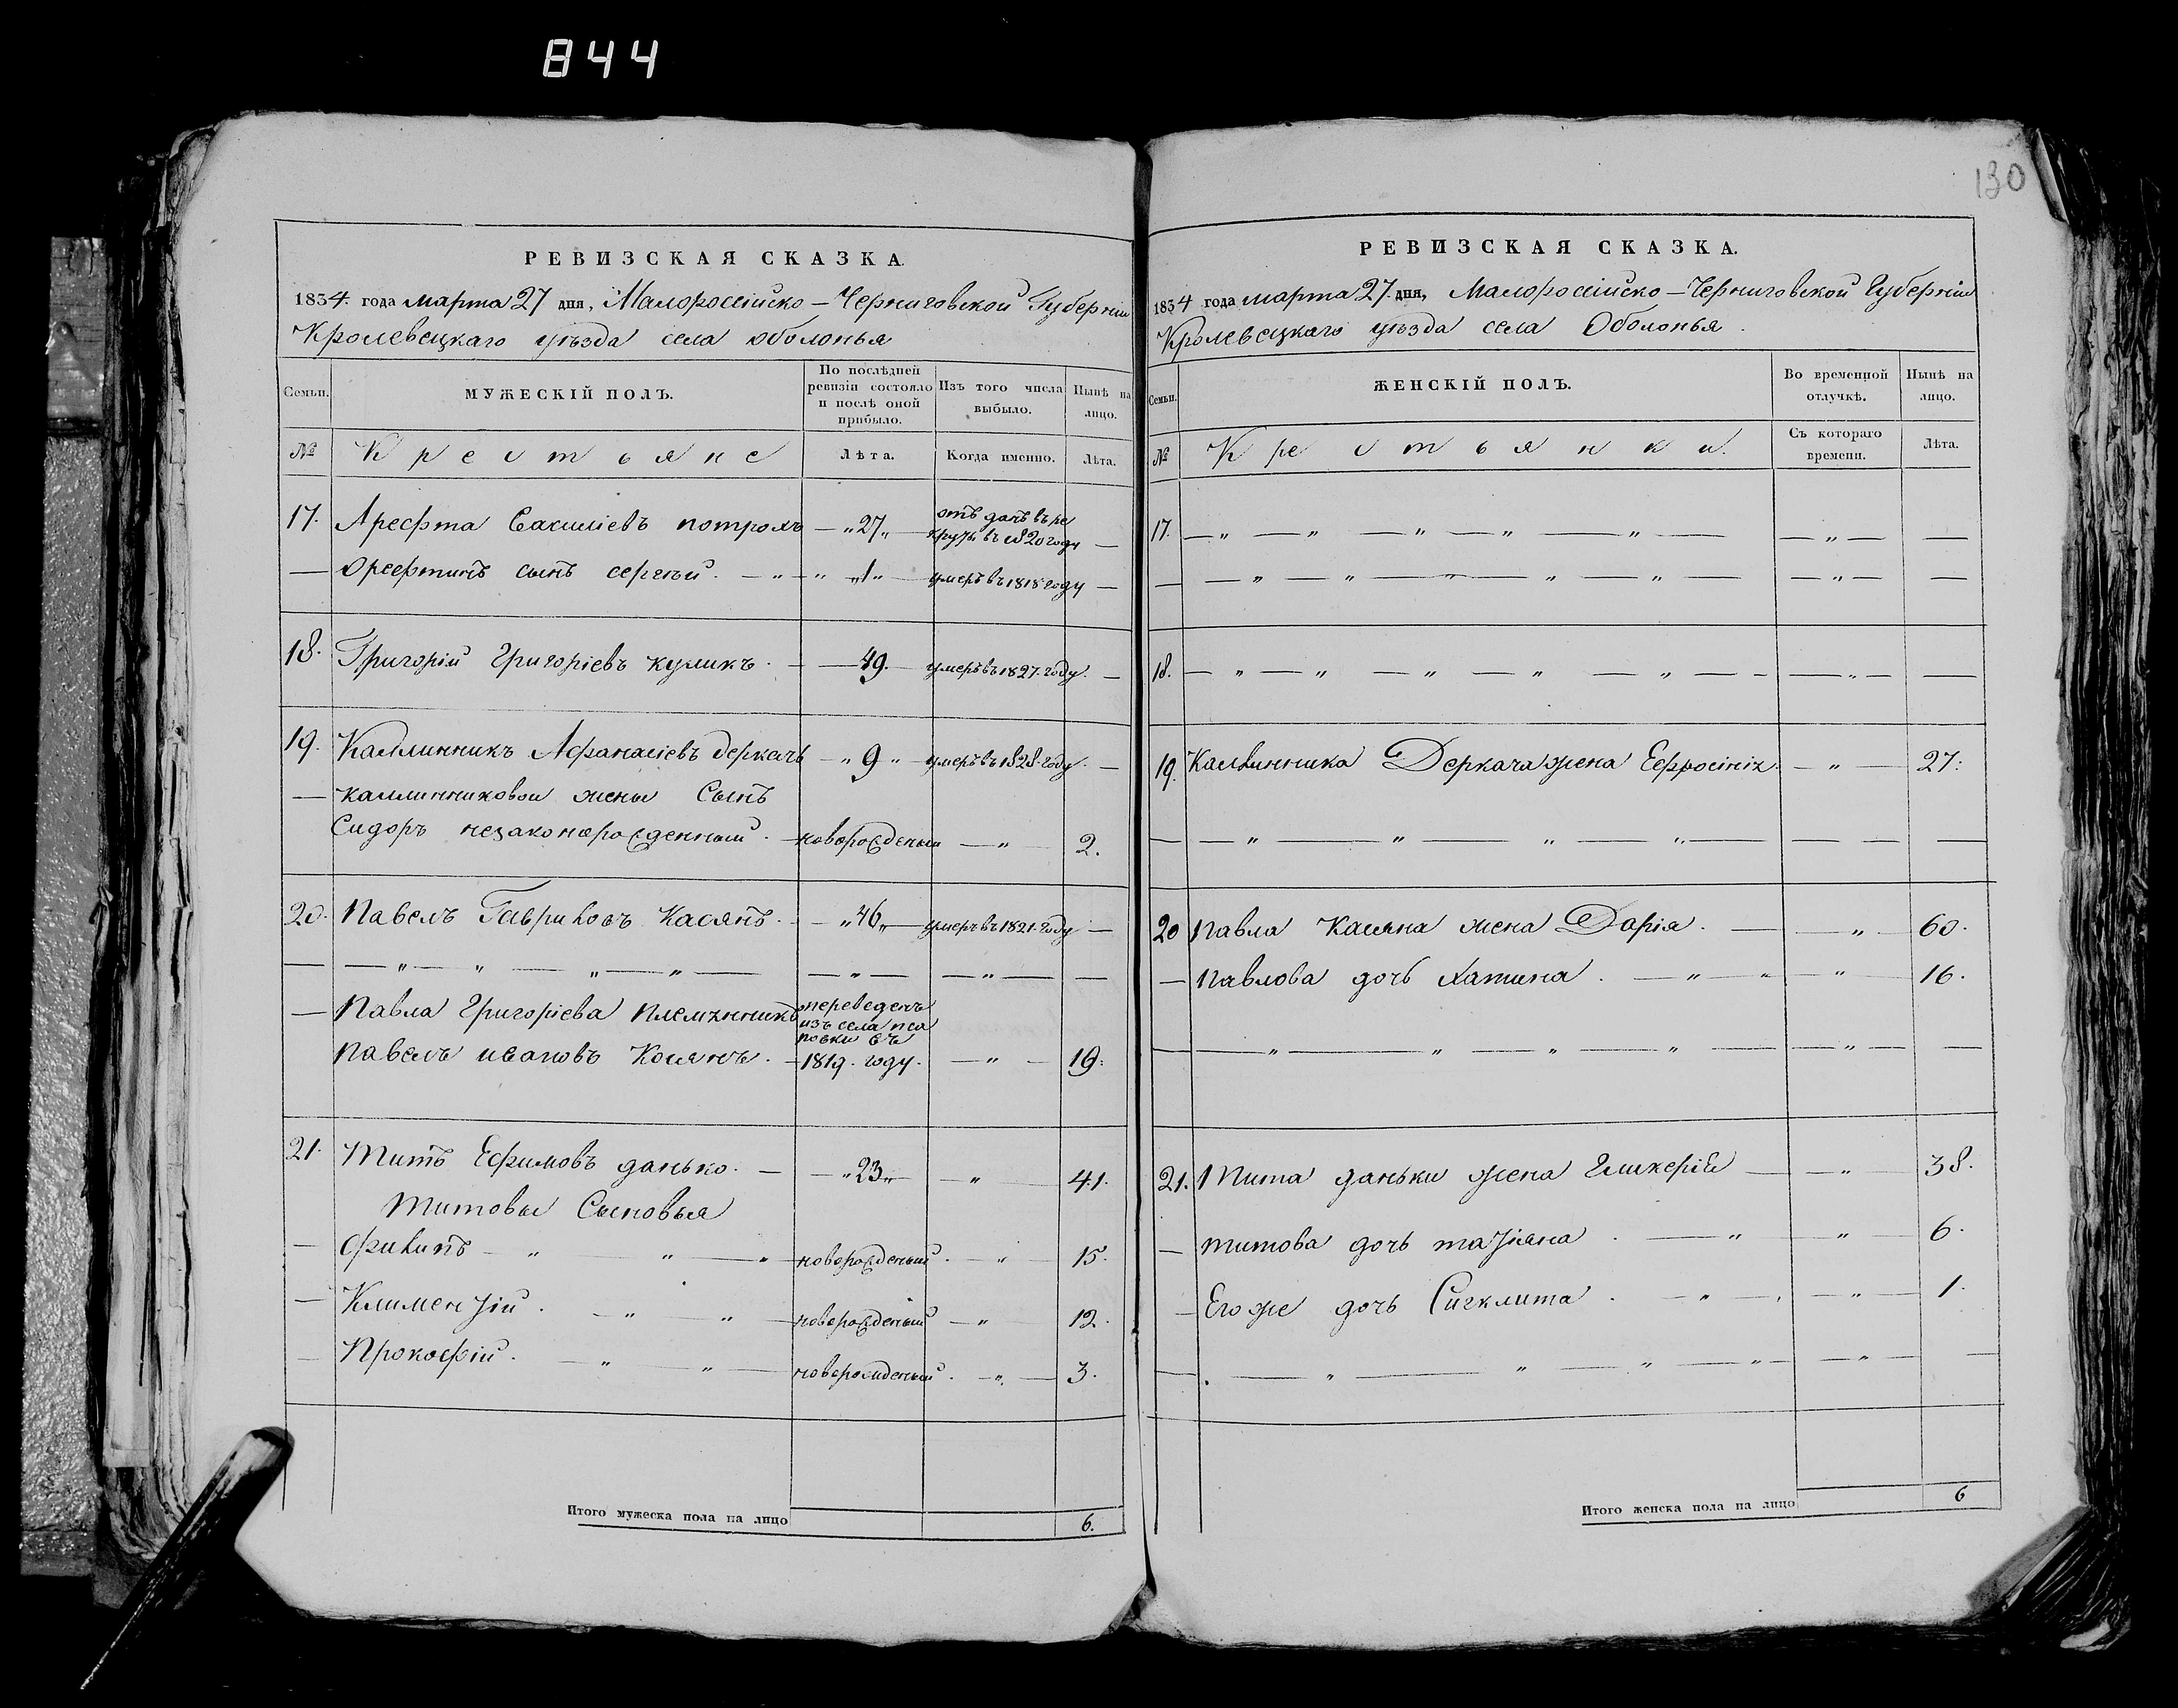 844
130
РЕВИЗСКАЯ СКАЗКА.
1834 года марта 27 дня, Малороссійско-Черниговской Губерніи
Кролевецкаго уѣзда села оболонья
Семьи.
МУЖЕСКІЙ ПОЛЪ.
По послѣдней ревизіи состояло и послѣ оной прибыло.
Изъ того числа выбыло.
Нынѣ на лицо.
№ Крестьяне Лѣта. Когда именно. Лѣта.
17. Арефта Василіевъ — „27„ — отъ данъ въ ре
круты въ 1820 году —
— Орефтинъ сынъ сергѣй. — „ — „ „1„ — умеръ въ 1818 году —
18. Григорій Григоріевъ куликъ. — 49. — умеръ въ 1827. году. —
19. Каллинникъ Афанасіевъ деркачъ — „ 9 „ — умеръ въ 1828. году. —
— каллинниковой жены Сынъ
Сидоръ незаконорожденный. — новорожденый — „ — 2.
20. Павелъ Гавриловъ Касянъ. — „46„ — умеръ въ 1821. году —
— — „ — „ — „ — „ — — „ — — „ — —
— Павла Григоріева племянникъ переведенъ
изъ села пса
ровки въ
Павелъ ивановъ Косянъ. — 1819. году. — „ — 19.
21. Титъ Ефимовъ данько. — — „23„ — — „ — 41.
Титовы Сыновья
— филипъ — „ „ — „ новорожденый. — „ — 15.
— Климентій. — „ — „ — новорожденый — „ — 12.
— Прокофій. — „ — „ — новорожденый. — „ — 3.
Итого мужеска пола на лицо 6.
РЕВИЗСКАЯ СКАЗКА.
1834 года марта 27. дня, Малороссійско-Черниговской Губерніи
Кролевецкаго уѣзда села Оболонья.
Семьи.
ЖЕНСКІЙ ПОЛЪ.
Во временной отлучкѣ.
Нынѣ на лицо.
№ Крестьянки. Съ котораго времени. Лѣта.
17. — „ — „ — „ — „ — „ — — „ — —
— — „ — „ — „ — „ — „ — „ — —
18. — „ — „ — „ — „ — „ — — „ — —
19. Каллинника Деркача жена Ефросінія. — „ — 27.
— — „ — „ — „ — „ — — — —
20 Павла Касяна жена Дарія. — — „ — 60.
— Павлова дочь . — „ — „ — „ — 16.
— — „ — „ — „ — „ — — „ — —
21. Тита даньки жена Гликерія — — „ — 38.
— титова дочь татіана . — „ „ — 6.
— Его же дочь Сигклита . — „ — . — „ — 1.
— . — „ — „ — „ — „ — — „ — —
Итого женска пола на лицо 6